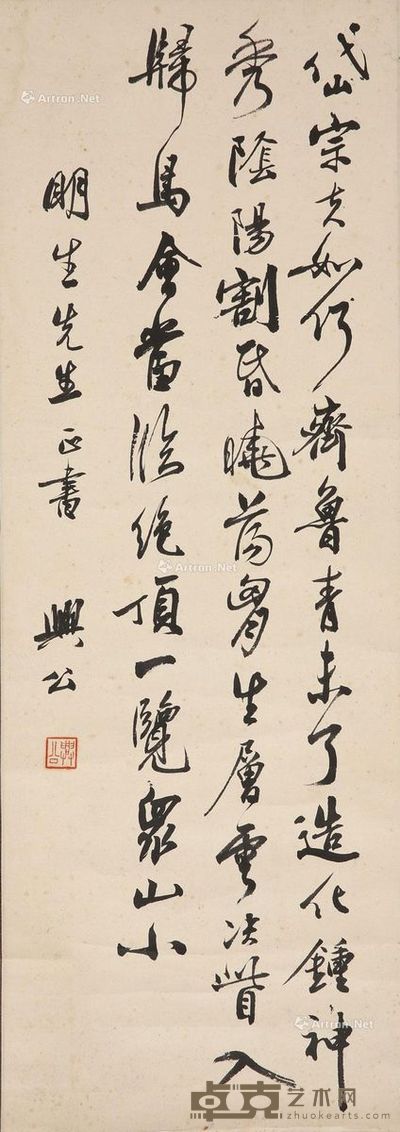 岱宗夫如何齊魯青未了造化鍾神
秀陰陽割昏曉蕩胸生層雲决眥入
歸鳥會當臨絶頂一覽眾山小
明生先生正書
興公
興公
Artron.Net
Artron.Net
Artron.Net
Artron.Net
卓克艺术网
zhuokearts.com